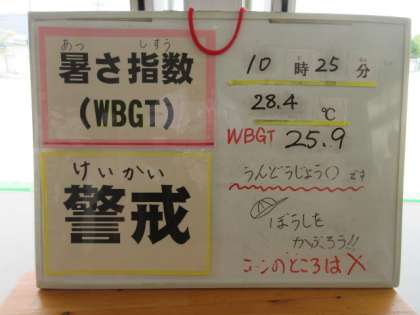 あつ しすう
暑さ指数
(WBGT)
けいかい
警戒
10時25分
28.4 ℃
WBGT 25.9
うんどうじょう○ です
ぼうしを
かぶろう!!
コーンのところは×